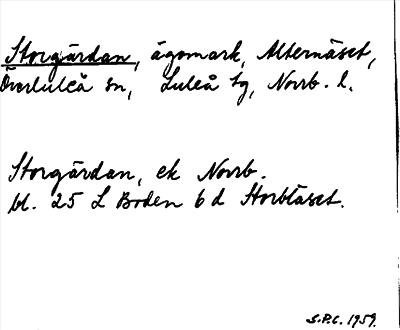 Storgärdan, ägomark, Alternäset,
Överluleå sn, Luleå tg, Norrb. l.
Storgärdan, ek Norrb.
bl. 25 L Boden 6 d Storbläset.
S.P.C. 1959.